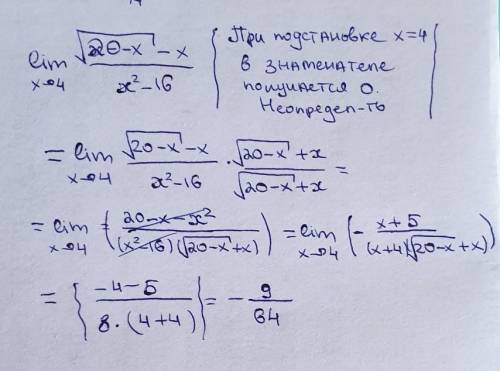 lim x→4 (√(20-x) - x)/(x² - 16) { При подстановке x=4
в знаменателе
получается 0.
Неопредел-ть
= lim x→4 (√(20-x) - x)/(x² - 16) · (√(20-x) + x)/(√(20-x) + x) =
= lim x→4 (- (20-x-x²)/((x²-16)(√(20-x)+x))) = lim x→4 (- (x+5)/((x+4)(√(20-x)+x)))
= { (-4-5)/(8·(4+4)) } = - 9/64